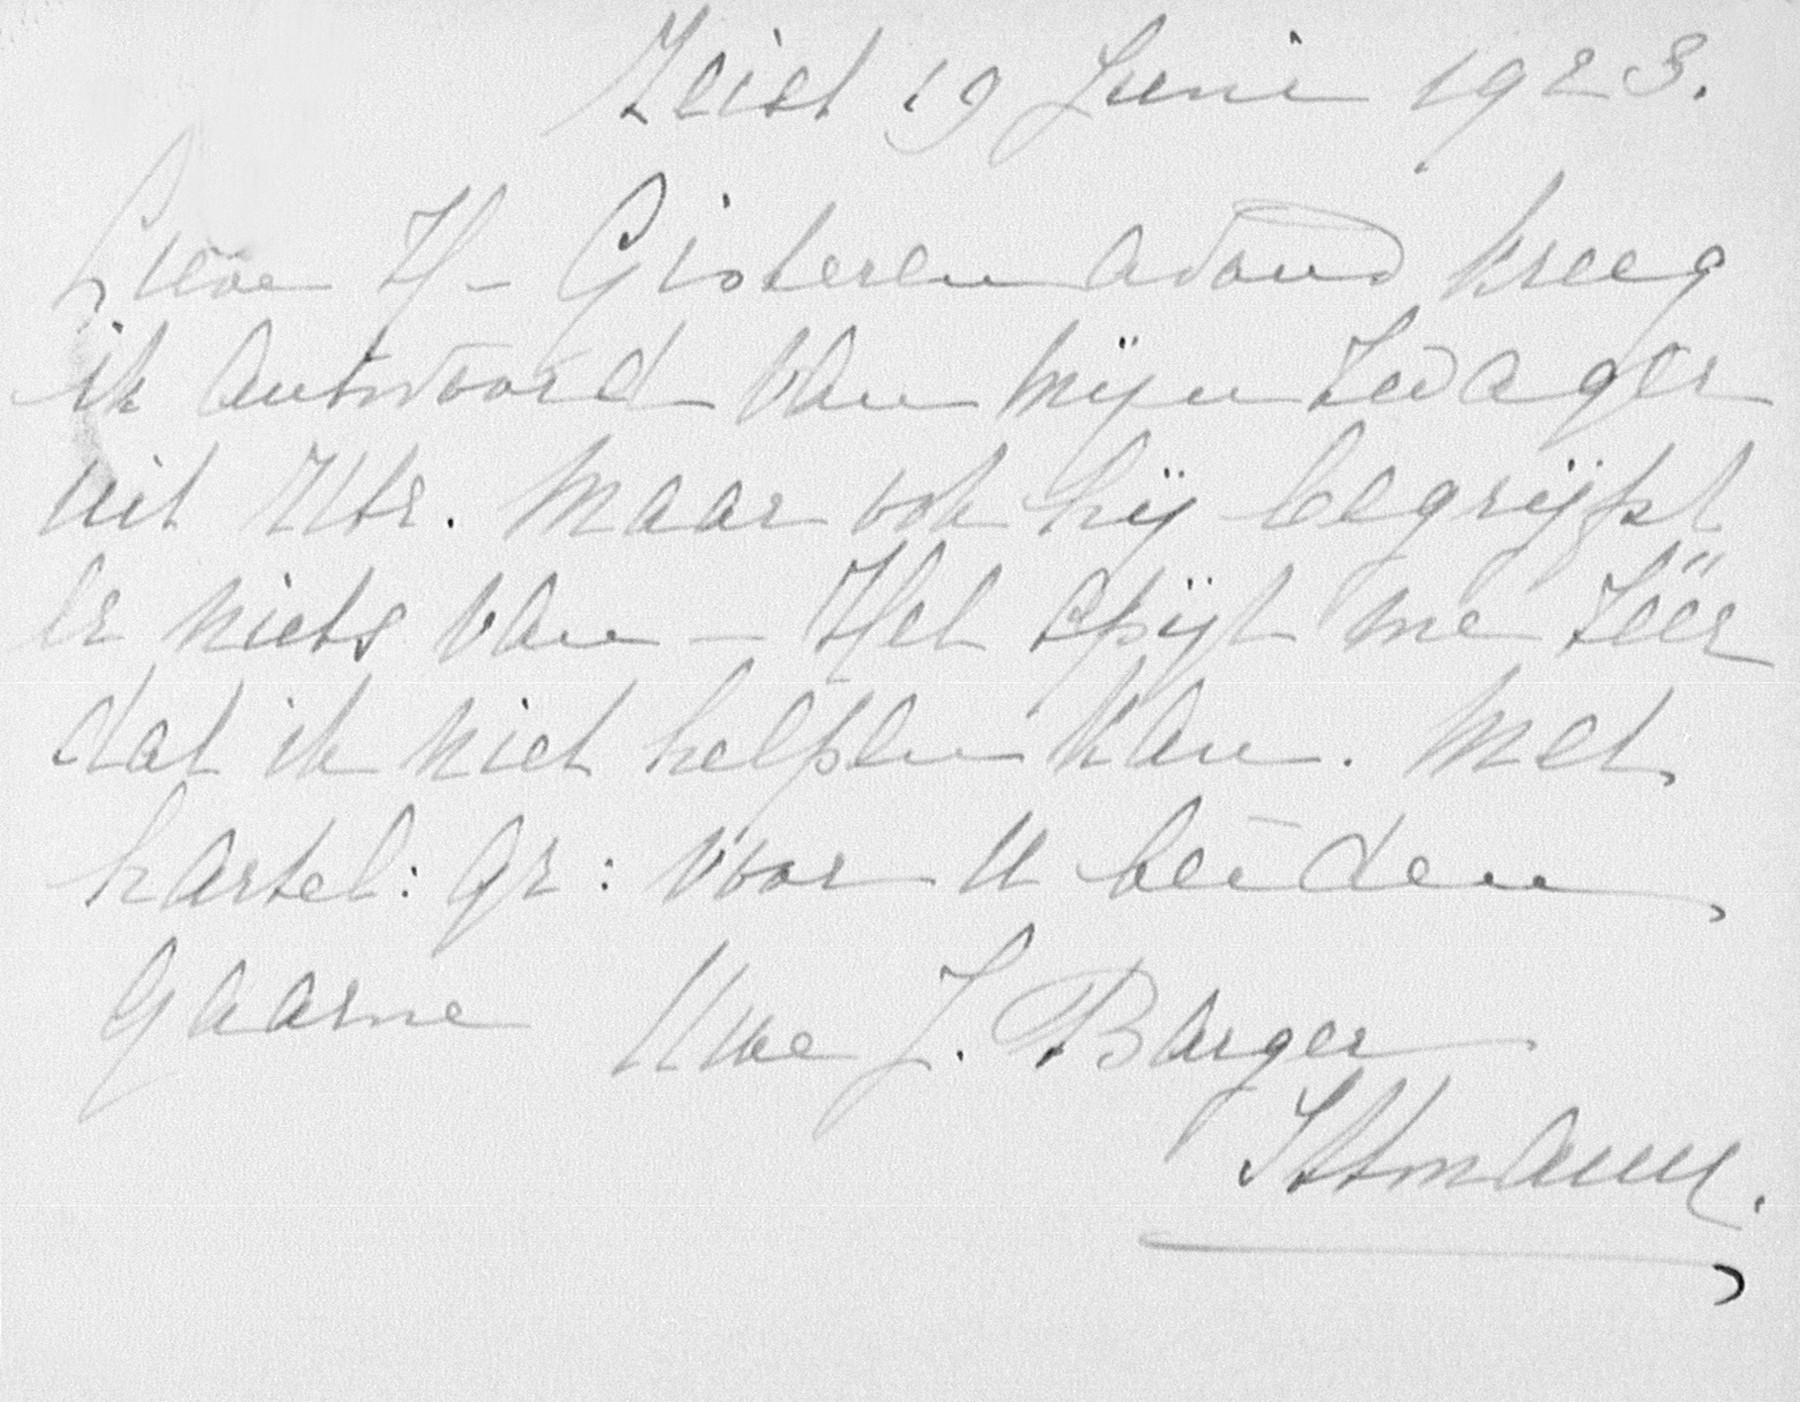 Zeist 19 Juni 1923.
Lieve H – Gisteren avond kreeg
ik antwoord van mijn zwager
uit Utr. maar ook hij begrijpt
er niets van – Het spijt me zéér
dat ik niet helpen kan. Met
hartel: gr: voor U beiden
gaarne Uwe J. Barger
Ittmann.